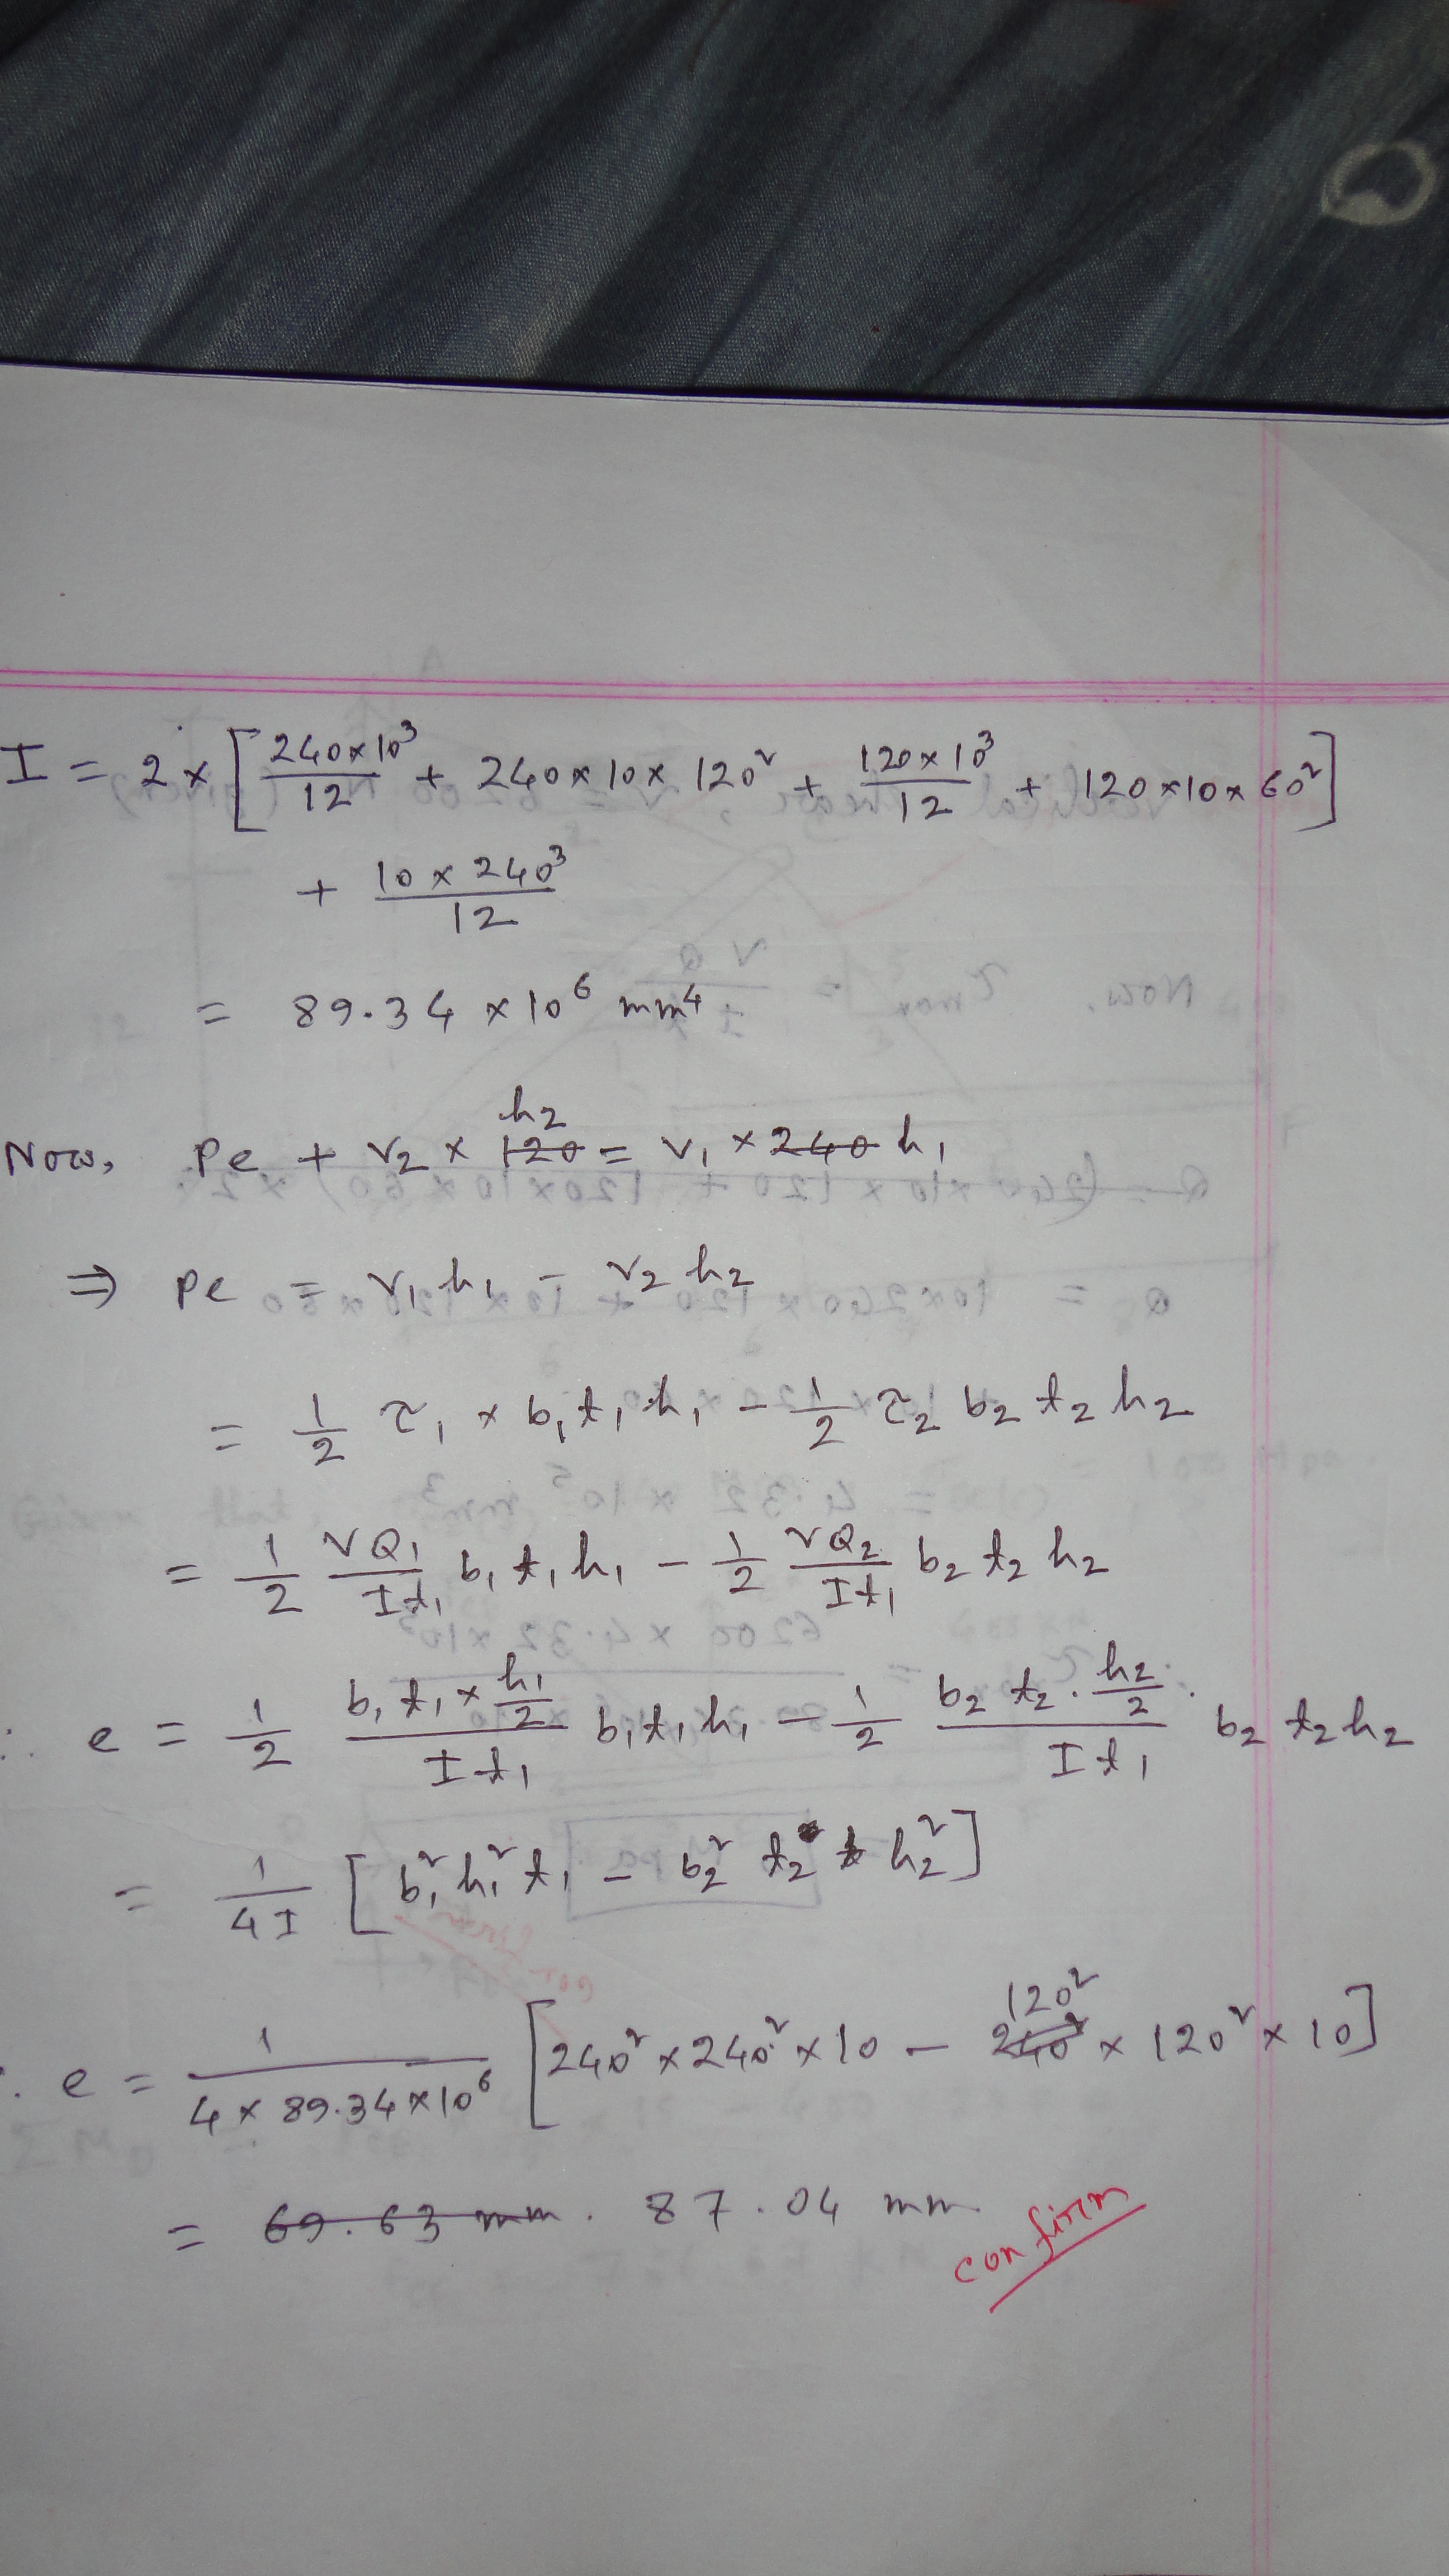 I = 2 × [ 240×10³/12 + 240×10×120² + 120×10³/12 + 120×10×60² ]
+ 10×240³/12
= 89.34 ×10⁶ mm⁴
Now, Pe + V₂ × ~~120~~ h₂ = V₁ × ~~240~~ h₁
⇒ Pe = V₁h₁ - V₂h₂
= 1/2 τ₁ × b₁t₁h₁ - 1/2 τ₂ b₂ t₂ h₂
= 1/2 VQ₁/It₁ b₁t₁h₁ - 1/2 VQ₂/It₁ b₂ t₂ h₂
∴ e = 1/2 (b₁t₁ × h₁/2)/(It₁) b₁t₁h₁ - 1/2 (b₂ t₂ · h₂/2)/(It₁) · b₂ t₂ h₂
= 1/4I [ b₁²h₁²t₁ - b₂² t₂ h₂² ]
∴ e = 1/(4 × 89.34×10⁶) [ 240² × 240² × 10 - ~~240²~~ 120² × 120² × 10 ]
= ~~69.63 mm~~. 87.04 mm
confirm